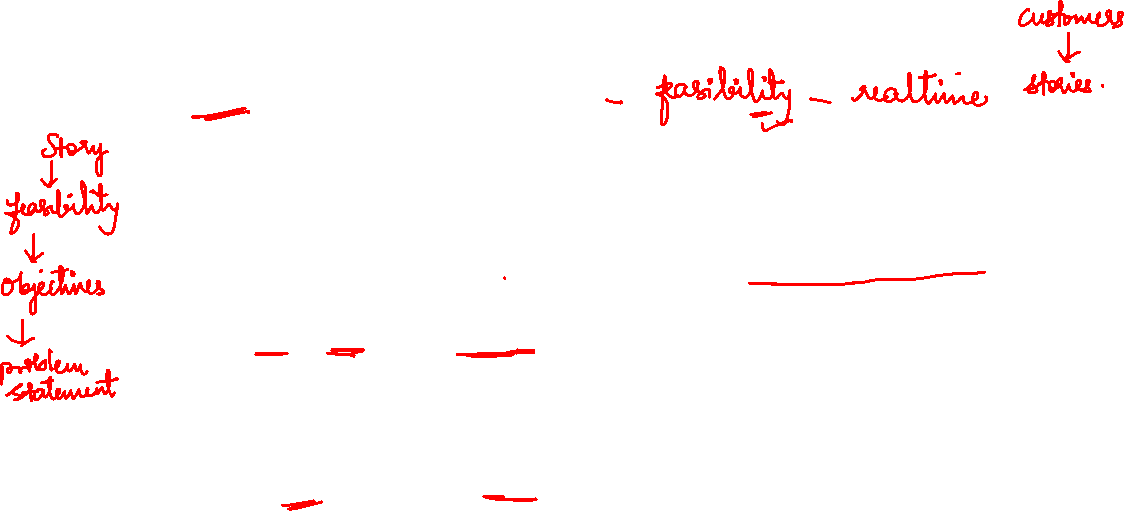 customers
↓
- feasibility - realtime stories.
Story
↓
feasibility
↓
Objectives
↓
problem
statement